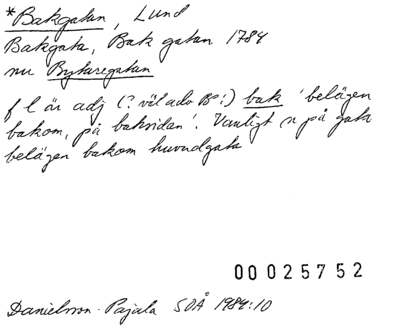 *Bakgatan, Lund
Bakgata, Bak gatan 1784
nu Bytaregatan
f l är adj (? väl adv B^s:) bak 'belägen
bakom, på baksidan'. Vanligt n på gata
belägen bakom huvudgata
00025752
Danielsson-Pajala SOÅ 1984:10